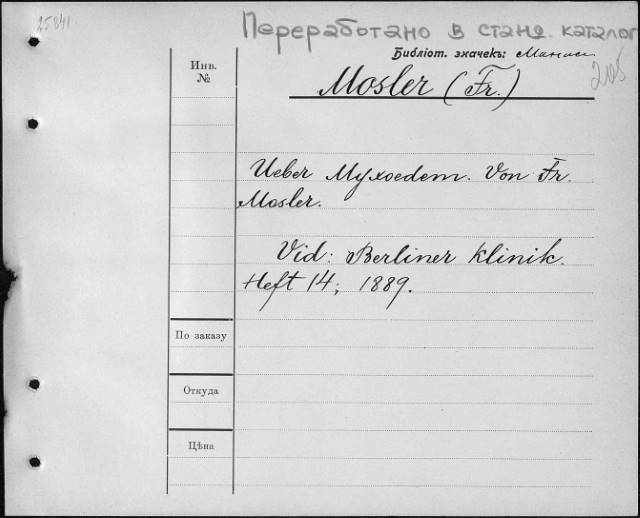 25841.
Переработано в станд. каталог
Библіот. значекъ:
205
Инв.
№
Mosler (Fr.)
Ueber Myxoedem. Von Fr.
Mosler.
Vid: Berliner Klinik.
Heft 14, 1889.
По заказу
Откуда
Цѣна